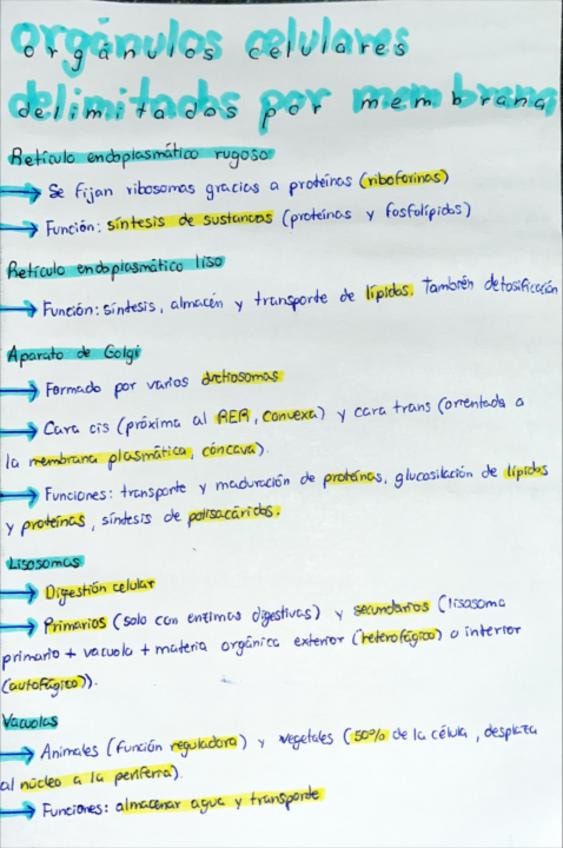 orgánulos celulares
delimitados por membrana
Retículo endoplasmático rugoso
→ Se fijan ribosomas gracias a proteínas (riboforinas)
→ Función: síntesis de sustancias (proteínas y fosfolípidos)
Retículo endoplasmático liso
→ Función: síntesis, almacén y transporte de lípidos. También detosificación
Aparato de Golgi
→ Formado por varios dictiosomas
→ Cara cis (próxima al RER, convexa) y cara trans (orientada a
la membrana plasmática, cóncava).
→ Funciones: transporte y maduración de proteínas, glucosilación de lípidos
y proteínas, síntesis de polisacáridos.
Lisosomas
→ Digestión celular
→ Primarios (solo con enzimas digestivas) y secundarios (lisosoma
primario + vacuola + materia orgánica exterior (heterofágico) o interior
(autofágico)).
Vacuolas
→ Animales (función reguladora) y vegetales (50% de la célula, desplaza
al núcleo a la periferia).
→ Funciones: almacenar agua y transporte